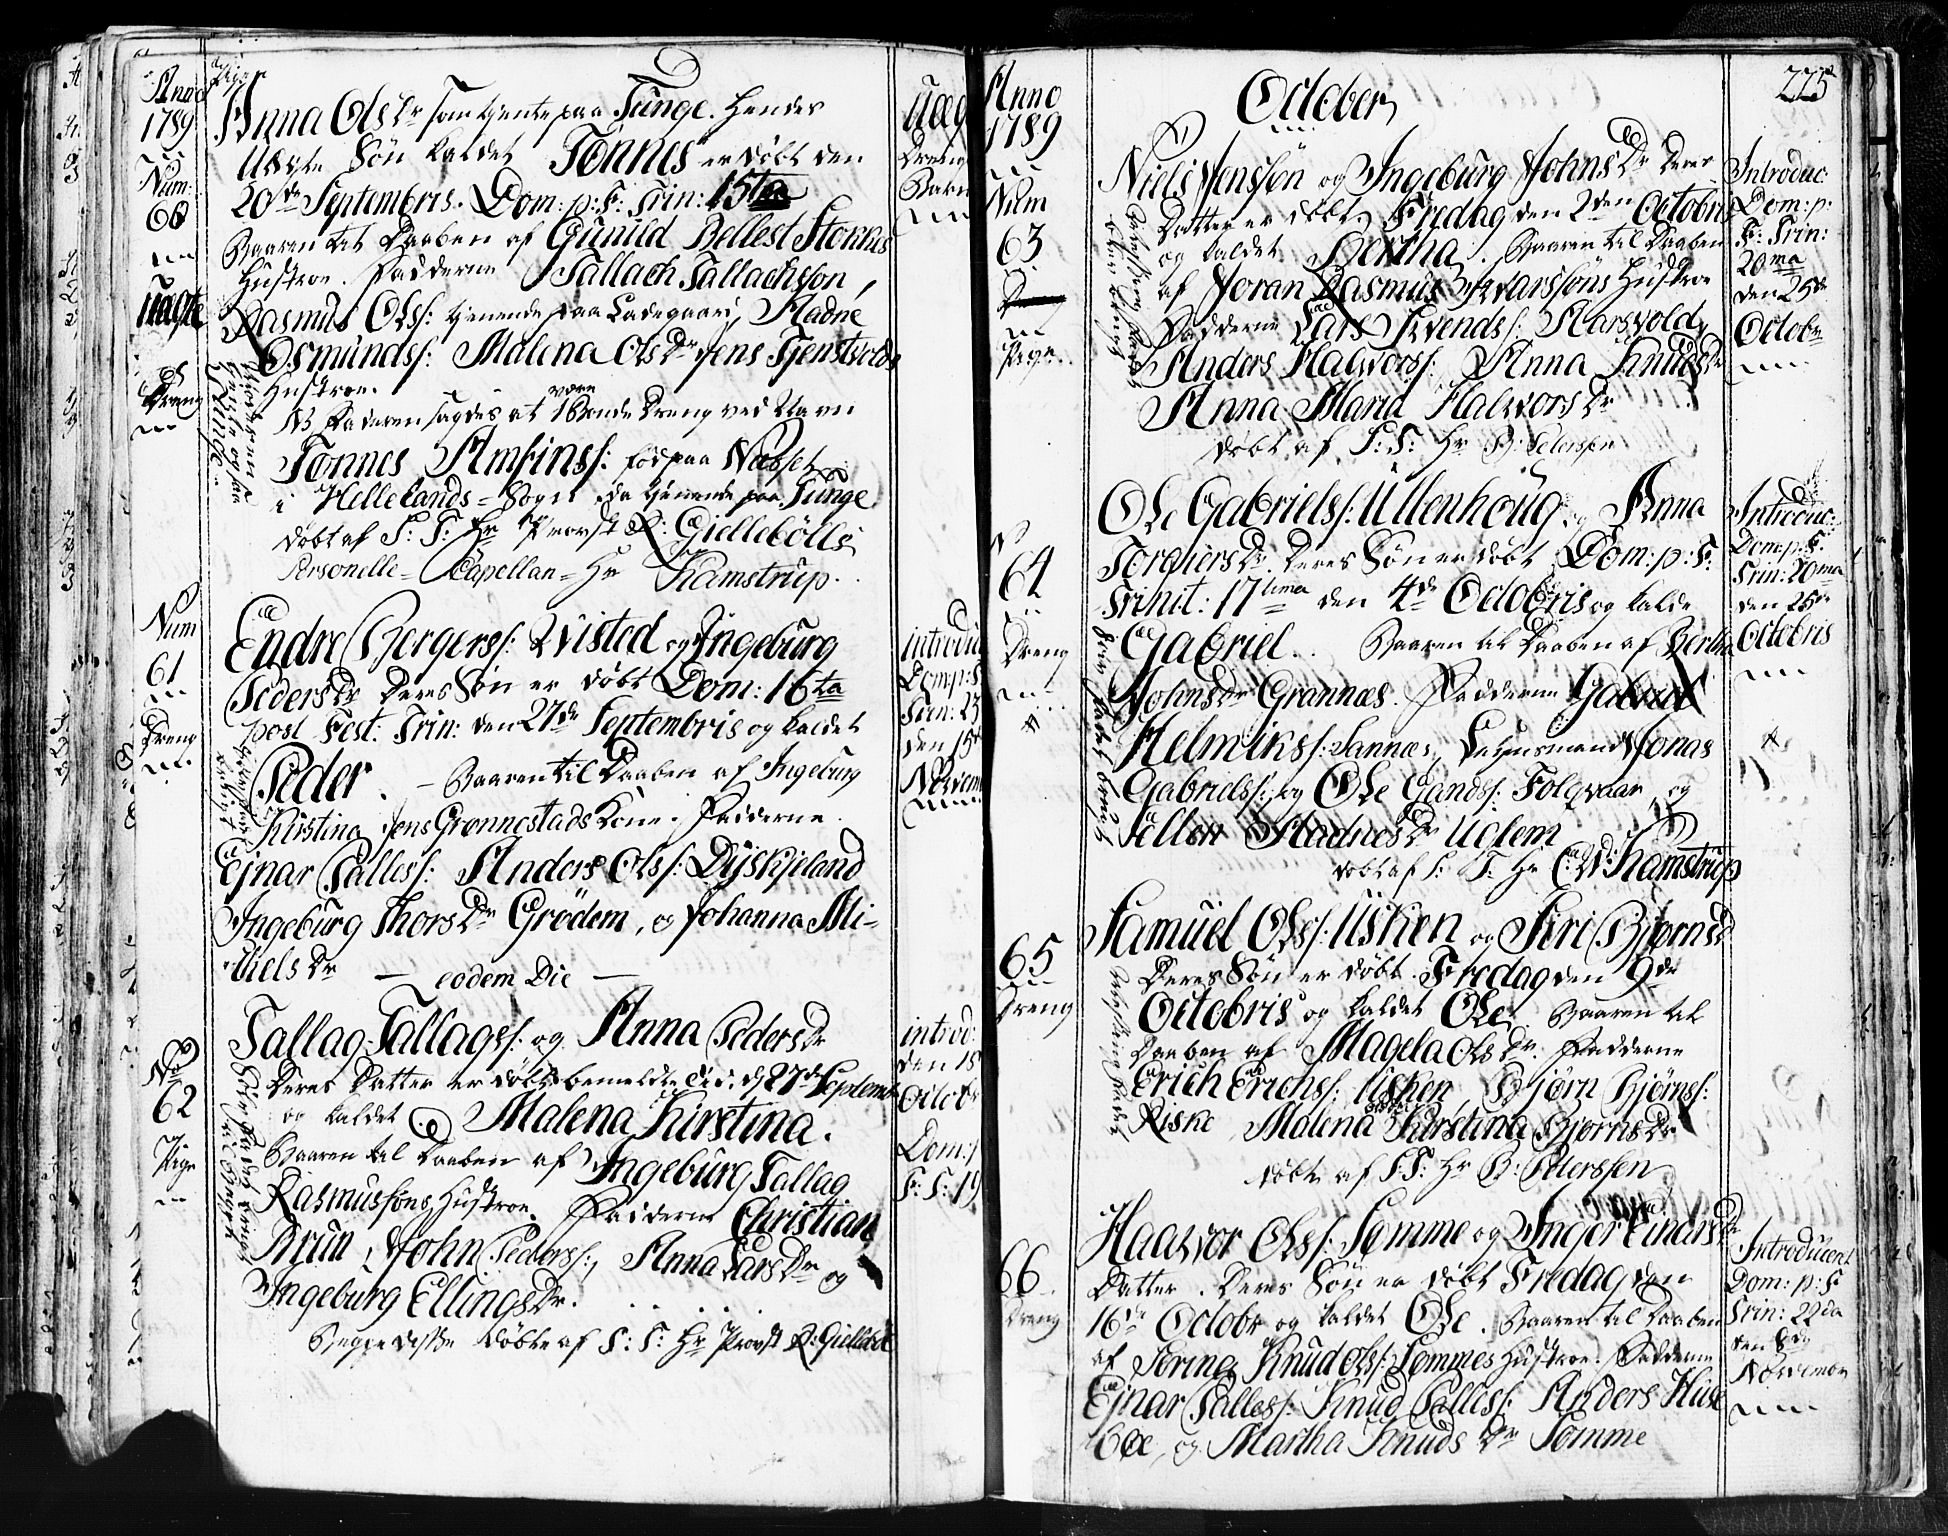 Anno
1789
Num:
60
Uægte
Dreng
Pigen
Anna OlsDr som tjente paa Tunge. Hendes
Uægte Søn kaldet Tönnes er døbt den
20de Septembris. Dom: p: F: Trin: 15ta
Baaren til Daaben af Gunild Bellest Stornes
Hustroe. Fadderne Tallach Tallachsön,
Rasmus Olss: tjenende paa Ladegaard, Aadne
Osmundss: Malena OlsDr Jens Tjenstvolds
Hustroe.
NB Faderen sagdes at være 1 Bonde Dreng ved Navn
Tönnes Amsinss: fød paa
i Hellelands=Sogn da tjenende paa Tunge
døbt af S: T: Hr Provst R: Giellebölls
Personelle=Capellan=Hr Kamstrup.
Uægte
Dreng
Barn
Num
61
Dreng
Endre Bergerss: Wisted og Ingeburg
PedersDr deres Søn er døbt Dom: 16ta
post Fest: Trin: den 27de Septembris og kaldet
Peder. - Baaren til Daaben af Ingeburg
Kirstina Jens Grönnestads Kone. Fadderne
Ejnar Palless: Anders Olss: Dyskjeland
Ingeburg ThorsDr Grödem, og Johanna Mi-
kielsDr — eodem Die —
introdu
Dom p: F
Trin: 23
den 15de
Novem
No
62
Pige
Tallag Tallagss: og Anna PedersDr
Deres Datter er døbt bemeldte Die d 27de Septembr
og kaldet Malena Kirstina.
Baaren til Daaben af Ingeburg Tallag
Rasmussöns Hustroe. Fadderne Christian
Brun, John Pederss:, Anna LarsDr og
Ingeburg EllingsDr.
Begge disse døbte af S: T: Hr Provst R: Gielleböl
introd:
den 18
Octobr
Dom: p
F: T: 19
Anno
1789
Num
63
Pige
October
225
Niels Jensön og Ingeburg JohnsDr Deres
Datter er døbt Fredag den 2den Octobris
og kaldet Bertha. Baaren til Daaben
af Joran Rasmus Iwarsöns Hustroe
Fadderne Lars Svendss: Aarsvold,
Anders Halvorss: Anna KnudsDr
Anna Maria HalvorsDr
døbt af S: T: Hr B: Peterssen
Introduc:
Dom: p:
F: Trin:
20ma
den 25de
Octobr
N
64
Dreng
Ole Gabrielss: Ullenhoug og Anna
TorgiersDr Deres Søn er døbt Dom: p: F:
Trinit: 17tima den 4de Octobris og kaldet
Gabriel. Baaren til Daaben af Bertha
JohnsDr Grannæs. Fadderne Gabriel
Helmikss: Sannæs, Lehnsmand Jonas
Gabrielss:, og Ole Gandss: Folqvaar, og
Ellen AadnesDr Uglem
døbt af S: T: Hr C: W: Kamstrup
Introduc:
Dom: p: F:
Trin: 20ma
den 25de
Octobris
65
Dreng
Samuel Olss: Usken og Siri BjörnsD
Deres Søn er døbt Fredag den 9de
Octobris og kaldet Ole. Baaren til
Daaben af Magela OlsDr. Fadderne
Erich Erichss: Usken, Bjørn Bjørnss:
Riske Malena Kirstina BjörnsDr
døbt af S: T: Hr B: Peterssen
66
Dreng
Haavor Olss: Sömme og Inger Einars
Datter. Deres Søn er døbt Fredag den
16de Octobr og kaldet Ole. Baaren til Daaben
af Sörine Knud Olss: Sömmes Hustroe. Fadderne
Ejnar Palless: Knud Palless: Anders Huse
böe, og Martha KnudsDr Sömme
Introducert
Dom: p: F
Trin: 22da
den 8de
Novembr